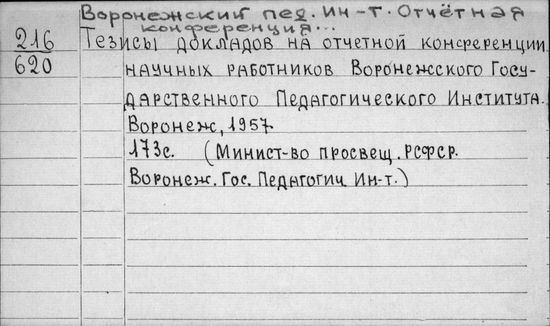 Воронежский пед. ин-т. Отчётная
конференция...
216 Тезисы докладов на отчетной конференции
620 научных работников Воронежсского Госу-
дарственного Педагогического Института.
Воронеж, 1957.
173с. (Минист-во просвещ. РСФСР.
Воронеж. Гос. Педагогич. Ин-т.)